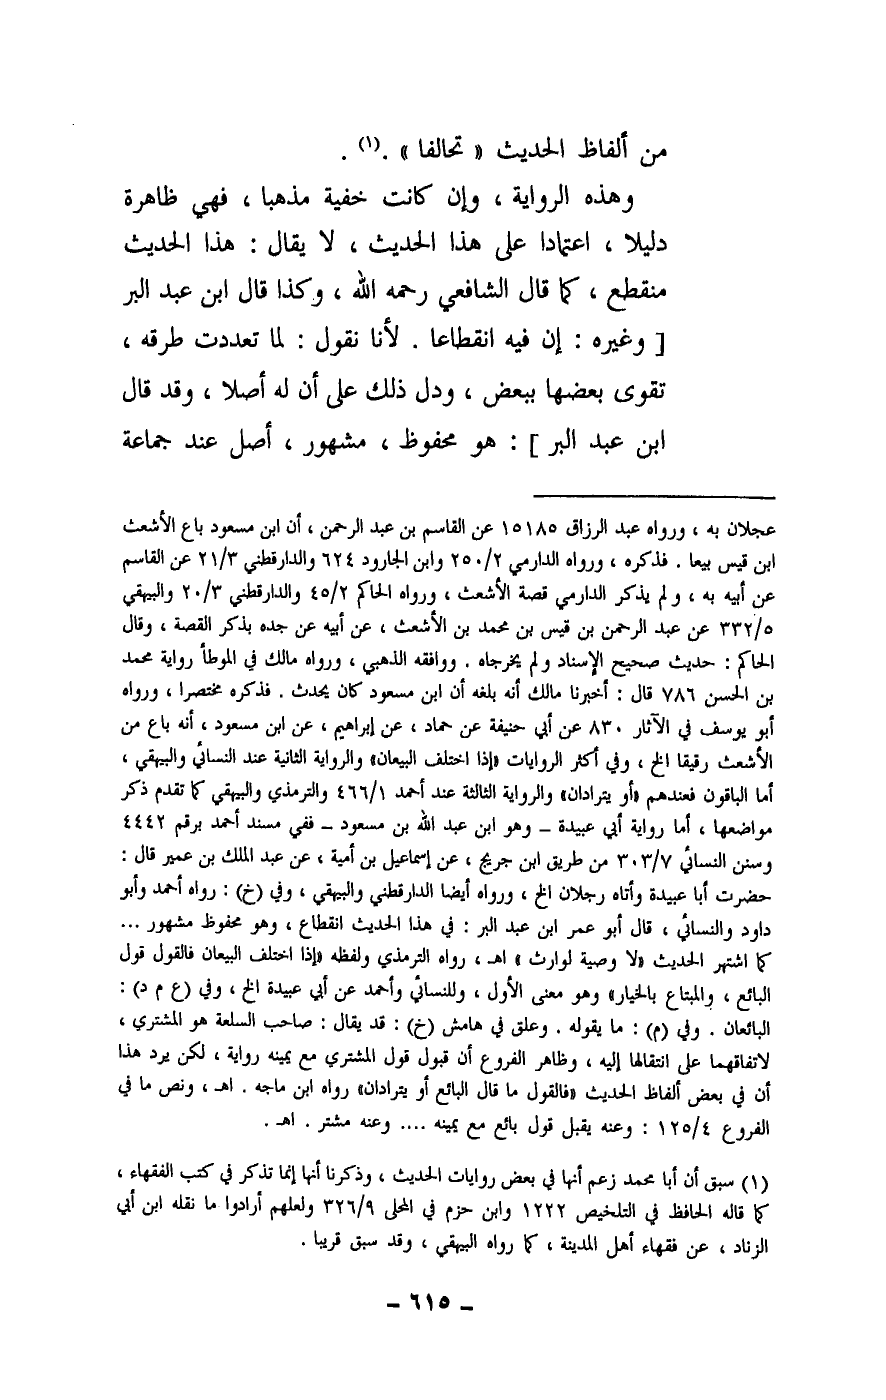 من ألفاظ الحديث « تحالفا » .(١) .
وهذه الرواية ، وإن كانت خفية مذهبا ، فهي ظاهرة
دليلا ، اعتمادا على هذا الحديث ، لا يقال : هذا الحديث
منقطع ، كما قال الشافعي رحمه الله ، وكذا قال ابن عبد البر
[ وغيره : إن فيه انقطاعا . لأنا نقول : لما تعددت طرقه ،
تقوى بعضها ببعض ، ودل ذلك على أن له أصلا ، وقد قال
ابن عبد البر ] : هو محفوظ ، مشهور ، أصل عند جماعة
عجلان به ، ورواه عبد الرزاق ١٥١٨٥ عن القاسم بن عبد الرحمن ، أن ابن مسعود باع الأشعث
ابن قيس بيعا . فذكره ، ورواه الدارمي ٢٥٠/٢ وابن الجارود ٦٢٤ والدارقطني ٢١/٣ عن القاسم
عن أبيه به ، ولم يذكر الدارمي قصة الأشعث ، ورواه الحاكم ٤٥/٢ والدارقطني ٢٠/٣ والبيهقي
٣٣٢/٥ عن عبد الرحمن بن قيس بن محمد بن الأشعث ، عن أبيه عن جده بذكر القصة ، وقال
الحاكم : حديث صحيح الإسناد ولم يخرجاه . ووافقه الذهبي ، ورواه مالك في الموطأ رواية محمد
بن الحسن ٧٨٦ قال : أخبرنا مالك أنه بلغه أن ابن مسعود كان يحدث . فذكره مختصرا ، ورواه
أبو يوسف في الآثار ٨٣٠ عن أبي حنيفة عن حماد ، عن إبراهيم ، عن ابن مسعود ، أنه باع من
الأشعث رقيقا الخ ، وفي أكثر الروايات «إذا اختلف البيعان» والرواية الثانية عند النسائي والبيهقي ،
أما الباقون فعندهم «أو يترادان» والرواية الثالثة عند أحمد ٤٦٦/١ والترمذي والبيهقي كما تقدم ذكر
مواضعها ، أما رواية أبي عبيدة – وهو ابن عبد الله بن مسعود – ففي مسند أحمد برقم ٤٤٤٢
وسنن النسائي ٣٠٣/٧ من طريق ابن جريج ، عن إسماعيل بن أمية ، عن عبد الملك بن عمير قال :
حضرت أبا عبيدة وأتاه رجلان الخ ، ورواه أيضا الدارقطني والبيهقي ، وفي (خ) : رواه أحمد وأبو
داود والنسائي ، قال أبو عمر ابن عبد البر : في هذا الحديث انقطاع ، وهو محفوظ مشهور ...
كما اشتهر الحديث «لا وصية لوارث » اهـ ، رواه الترمذي ولفظه «إذا اختلف البيعان فالقول قول
البائع ، والمبتاع بالخيار» وهو معنى الأول ، وللنسائي وأحمد عن أبي عبيدة الخ ، وفي (ع م د) :
البائعان . وفي (م) : ما يقوله . وعلق في هامش (خ) : قد يقال : صاحب السلعة هو المشتري ،
لاتفاقهما على انتقالها إليه ، وظاهر الفروع أن قبول قول المشتري مع يمينه رواية ، لكن يرد هذا
أن في بعض ألفاظ الحديث «فالقول ما قال البائع أو يترادان» رواه ابن ماجه . اهـ ، ونص ما في
الفروع ١٢٥/٤ : وعنه يقبل قول بائع مع يمينه .... وعنه مشتر . اهـ .
(١) سبق أن أبا محمد زعم أنها في بعض روايات الحديث ، وذكرنا أنها إنما تذكر في كتب الفقهاء ،
كما قاله الحافظ في التلخيص ١٢٢٢ وابن حزم في المحلى ٣٢٦/٩ ولعلهم أرادوا ما نقله ابن أبي
الزناد ، عن فقهاء أهل المدينة ، كما رواه البيهقي ، وقد سبق قريبا .
– ٦١٥ –